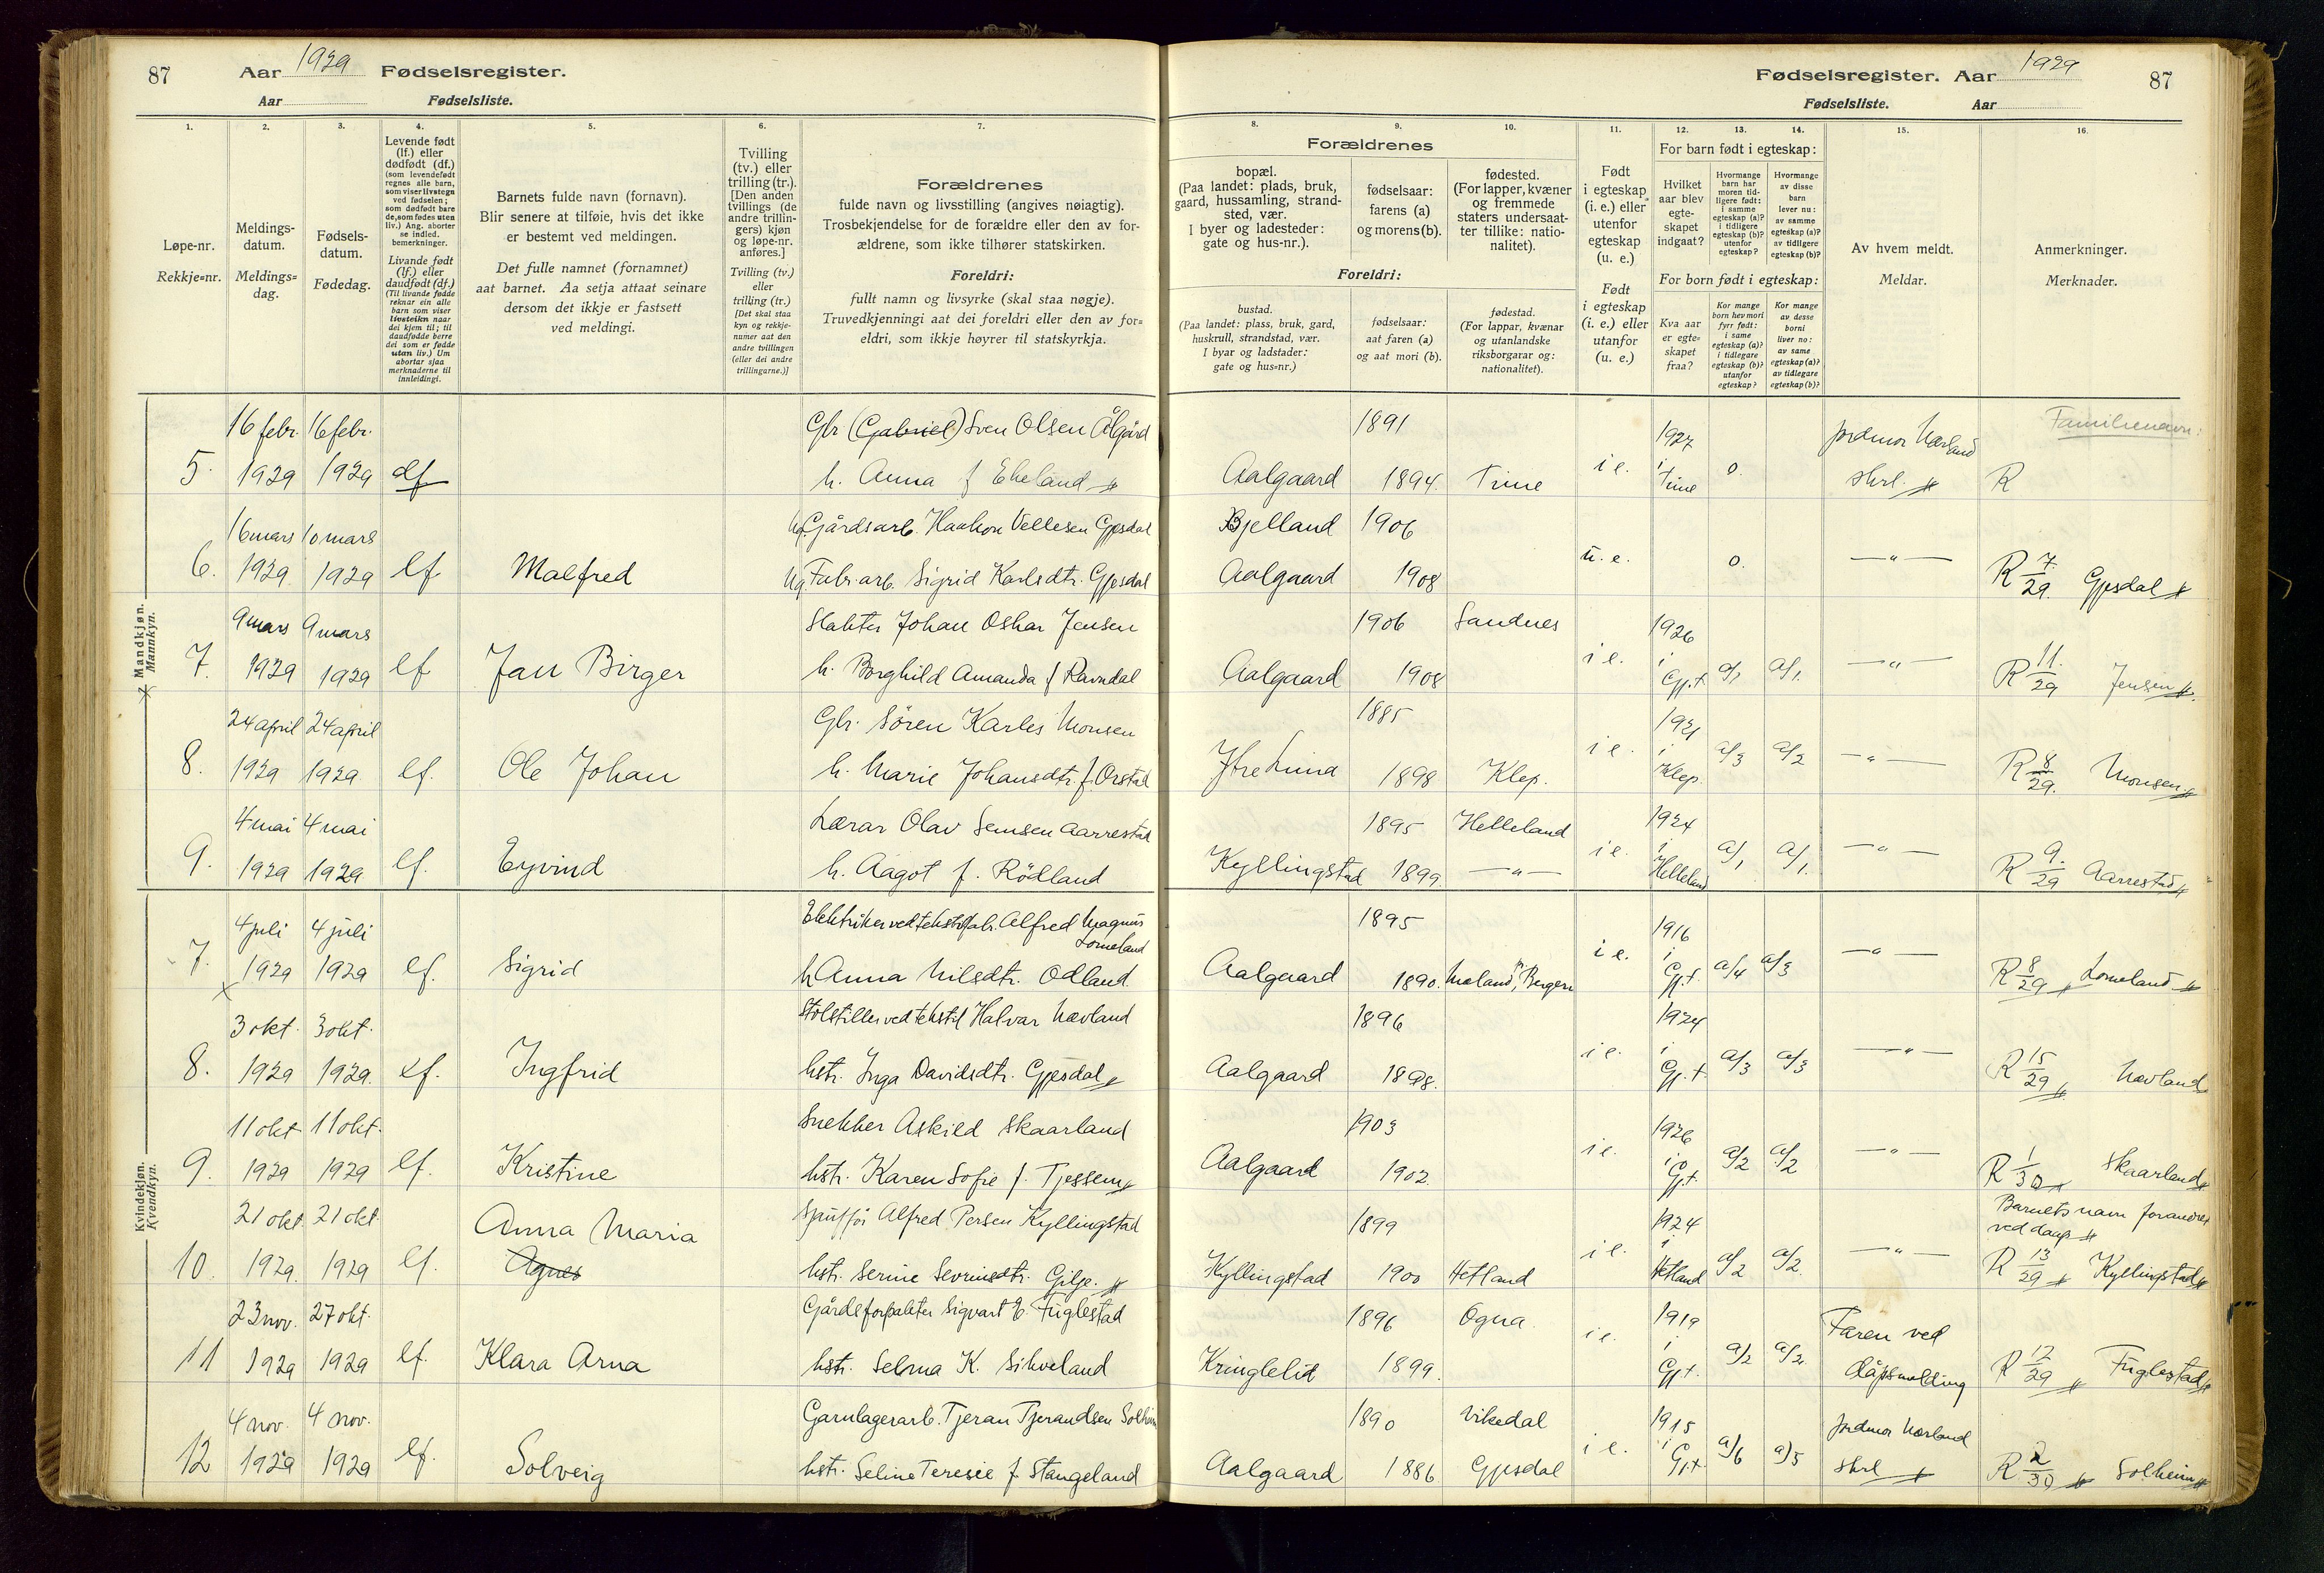 87 Aar 1929 Fødselsregister.
Aar Fødselsliste.
Fødselsregister. Aar 1929 87
Fødselsliste. Aar
1. 2. 3. 4. 5. 6. 7.
Løpe-nr.
Rekkje=nr.
Meldings-
datum.
Meldings=
dag.
Fødsels-
datum.
Fødedag.
Levende født
(lf.) eller
dødfødt (df.)
(som levendefødt
regnes alle barn,
som viser livstegn
ved fødselen;
som dødfødt bare
de, som fødes uten
liv.) Ang. aborter
se indled.
bemerkninger.
Livande født
(lf.) eller
daudfødt (df.)
(Til livande fødde
reknar ein alle
barn som viser
livsteikn naar
dei kjem til; til
daudfødde berre
dei som er fødde
utan liv.) Um
abortar sjaa
merknaderne til
innleidingi.
Barnets fulde navn (fornavn).
Blir senere at tilføie, hvis det ikke
er bestemt ved meldingen.
Det fulle namnet (fornamnet)
aat barnet. Aa setja attaat seinare
dersom det ikkje er fastsett
ved meldingi.
Tvilling
(tv.) eller
trilling (tr.).
[Den anden
tvillings (de
andre trillin-
gers) kjøn
og løpe-nr.
anføres.]
Tvilling (tv.)
eller
trilling (tr.)
[Det skal staa
kyn og rekkje-
numer aat den
andre tvillingen
(eller dei andre
trillingarne.)]
Forældrenes
fulde navn og livsstilling (angives nøiagtig).
Trosbekjendelse for de forældre eller den av for-
ældrene, som ikke tilhører statskirken.
Foreldri:
fullt namn og livsyrke (skal staa nøgje).
Truvedkjenningi aat dei foreldri eller den av for=
eldri, som ikkje høyrer til statskyrkja.
8. 9. 10. 11. 12. 13. 14. 15. 16.
Forældrenes
bopæl.
(Paa landet: plads, bruk,
gaard, hussamling, strand-
sted, vær.
I byer og ladesteder:
gate og hus-nr.).
fødselsaar:
farens (a)
og morens (b).
fødested.
(For lapper, kvæner
og fremmede
staters undersaat-
ter tillike: natio-
nalitet).
Foreldri:
bustad.
(Paa landet: plass, bruk, gard,
huskrull, strandstad, vær.
I byar og ladstader:
gate og hus=nr.)
fødselsaar:
aat faren (a)
og aat mori (b).
fødestad.
(For lappar, kvænar
og utanlandske
riksborgarar og:
nationalitet).
Født
i egteskap
(i. e.) eller
utenfor
egteskap
(u. e.)
Født
i egteskap
(i. e.) eller
utanfor
(u. e.)
For barn født i egteskap:
Hvilket
aar blev
egte-
skapet
indgaat?
Hvormange
barn har
moren tid-
ligere født:
i samme
egteskap (a)?
i tidligere
egteskap (b)?
utenfor
egteskap?
Hvormange
av disse
barn
lever nu:
av samme
egteskap (a)?
av tidligere
egteskap (b)?
For born født i egteskap:
Kva aar
er egte=
skapet
fraa?
Kor mange
born hev mori
fyrr født:
i same
egteskap (a)?
i tidlegare
egteskap (b)?
utanfor
egteskap?
Kor mange
av desse
borni
liver no:
av same
egteskap (a)?
av tidlegare
egteskap (b)?
Av hvem meldt.
Meldar.
Anmerkninger.
Merknader.
Mandkjøn.
Mannkyn.
Familienavn:
16 febr. 16 febr. Gbr (Gabriel) Sven Olsen Ålgård 1891 1927 jordmor Nærland
5. 1929 1929 df h. Anna f Eheland Aalgaard 1894. Time i e. i Time 0. skrl. R
16 mars 10 mars Ug. Gårdsarb. Haakon Vellesen Gjesdal Bjelland 1906
6. 1929 1929 lf Malfred Ug. Fabr. arb. Sigrid Karlsdtr. Gjesdal Aalgaard 1908 u. e. 0. — " — R 7/29. Gjesdal
9 mars 9 mars Slakter Johan Oskar Jensen 1906 Sandnes 1926
7. 1929 1929 lf Jan Birger h. Borghild Amanda f Ravndal Aalgaard 1908 i e. i Gj.t a/1 a/1. — " — R 11./29 Jensen
24 april 24 april Gbr. Sören Karles Monsen 1885 1921
8. 1929 1929 lf. Ole Johan h. Marie Johansdtr. f. Orstad Ytre Lima 1898 Klep. i e. i Klep. a/3 a/2 — " — R 8/29. Monsen
4 mai 4 mai Lærar Olav Semsen Aarrestad 1895 Helleland 1924
9. 1929 1929 lf. Eyvind h. Aagot f. Rödland Kyllingstad 1899. — " — i e. i Helleland a/1 a/1. — " — R 9./29 Aarrestad
Kvindekjøn.
Kvendkyn.
4 juli 4 juli Elektriker ved tekstilfabr. Alfred Magnus Lomeland 1895 1916
7. 1929 1929 lf. Sigrid h Anna Nilsdtr. Odland Aalgaard 1890. Meland, Bergen i e. i Gj.t. a/4 a/3 — " — R 8/29 Lomeland
3 okt. 3 okt. Stolstiller ved tekstil Halvar Nævland 1896 1924
8. 1929 1929. lf. Ingfrid hstr. Inga Davidsdtr. Gjesdal Aalgaard 1898. i e. i Gj.t a/3 a/3 — " — R 15/29 Nævland
11 okt 11 okt. Snekker Askild Skaarland 1903 1926
9. 1929 1929 lf. Kristine hstr. Karen Sofie f. Tjessem Aalgaard 1902. i e. i Gj.t. a/2 a/2 — " — R 1/30 Skaarland
21 okt. 21 okt. Anna Maria Alfred Persen Kyllingstad 1899 1924 Barnets navn forandret ved daap
10. 1929. 1929 lf. Agnes hstr. Serine Sevrinsdtr. Gilje. Kyllingstad 1900 Hetland i e. i Hetland a/2 a/2. — " — R 13/29 Kyllingstad
23 nov. 27 okt. Gårdsforpakter Sigvart E. Fuglestad 1896 Ogna 1919 Faren ved
11 1929 1929 lf. Klara Arna hstr. Selma K. Sikveland Kringlelid 1899. i e. i Gj.t. a/2 a/2 dåpsmelding R 12/29 Fuglestad
4 nov. 4 nov. Garnlagerarb. Tjeran Tjerandsen Solheim 1890 Vikedal 1915 jordmor Nærland
12 1929 1929 lf. Solveig hstr. Seline Teresie f. Stangeland Aalgaard 1886 Gjesdal i e. i Gj.t a/6 a/5 skrl R 2/30 Solheim